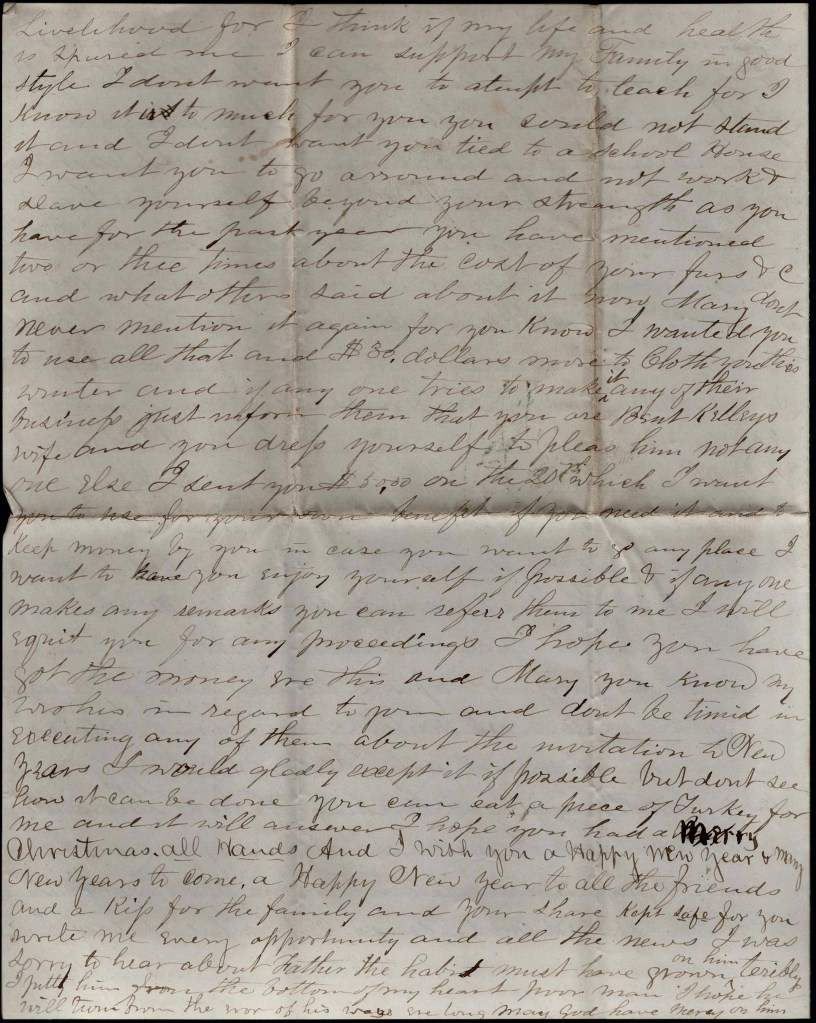 Livelihood for I think if my life and health
is spared me I can support my Family in good
style I dont want you to atempt to teach for I
Know it is to much for you you could not stand
it and I dont want you tied to a School House
I want you to go arround and not work &
slave yourself beyond your strength as you
have for the past year you have mentioned
two or thee times about the cost of your furs & C
and what others said about it now Mary dont
never mention it again for you Know I wanted you
to use all that and $30. dollars more to Cloth you this
winter and if any one tries to make it any of their
business just inform them that you are Bent Kelleys
wife and you dress yourself to pleas him not any
one else I sent you $50.00 on the 20th which I want
you to use for your own benefit if you need it and to
Keep money by you in case you want to go any place I
want to have you enjoy yourself if possible & if any one
makes any remarks you can referr them to me I will
equit you for any proceedings I hope you have
got the money ere this and Mary you know my
wishes in regard to you and dont be timid in
executing any of them about the invitation to New
Years I would gladly except it if possible but dont see
how it can be done you can eat a piece of Turkey for
me and it will answer I hope you had a Merry
Christmas. all Hands And I wish you a Happy New Year & many
New Years to come, a Happy New year to all the friends
and a Kiss for the family and your share Kept safe for you
write me every opportunity and all the news I was
sorry to hear about Father the habit must have grown on him teribly
I pitty him from the bottom of my heart poor man I hope he
will turn from the eror of his ways ere long may God have Mercy on him